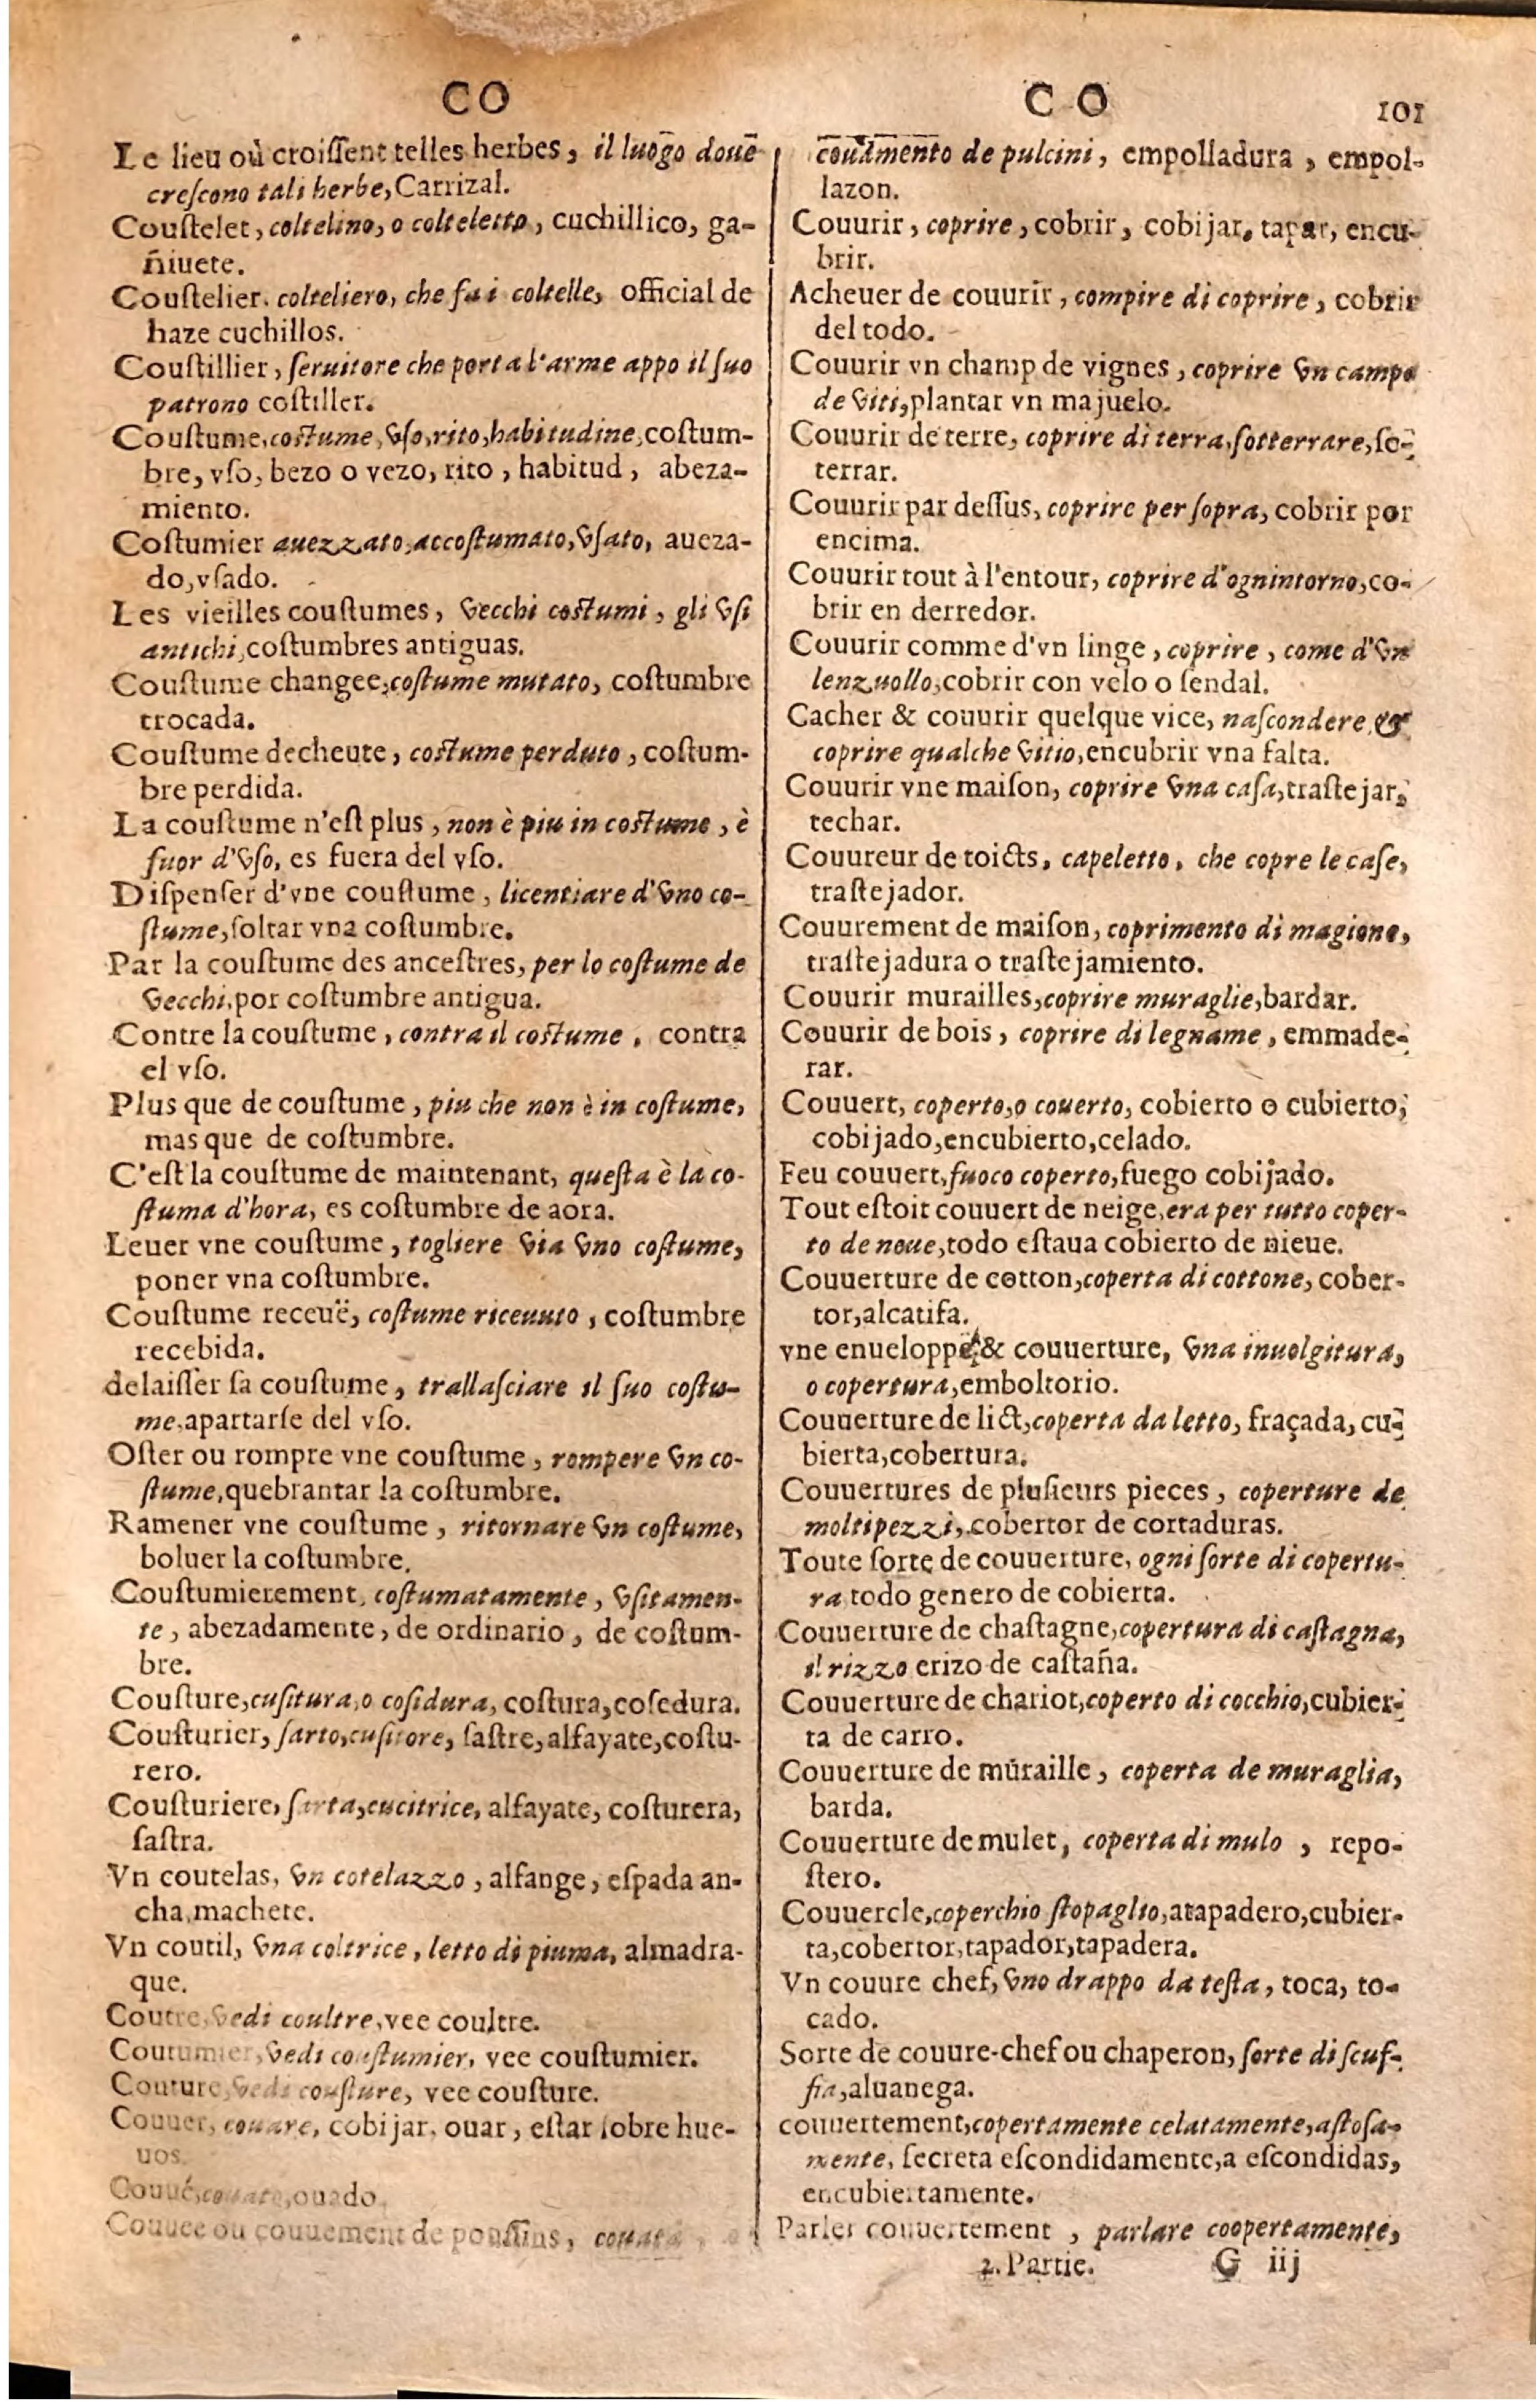 CO
Le lieu où croiſſent telles herbes, il luogo doue
creſcono tali herbe, Carrizal.
Couſtelet, coltelino, o colteletto, cuchillico, ga-
ñiuete.
Couſtelier. colteliero, che fa i coltelle, official de
haze cuchillos.
Couſtillier, ſeruitore che porta l'arme appo il ſuo
patrono coſtiller.
Couſtume, coſtume, vſo, rito, habitudine, coſtum-
bre, vſo, bezo o vezo, rito, habitud, abeza-
miento.
Coſtumier auezzato, accoſtumato, vſato, aueza-
do, vſado.
Les vieilles couſtumes, vecchi coſtumi, gli vſi
antichi, coſtumbres antiguas.
Couſtume changee, coſtume mutato, coſtumbre
trocada.
Couſtume decheute, coſtume perduto, coſtum-
bre perdida.
La couſtume n'eſt plus, non è piu in coſtume, è
fuor d'vſo, es fuera del vſo.
Diſpenſer d'vne couſtume, licentiare d'vno co-
ſtume, ſoltar vna coſtumbre.
Par la couſtume des anceſtres, per lo coſtume de
vecchi, por coſtumbre antigua.
Contre la couſtume, contra il coſtume, contra
el vſo.
Plus que de couſtume, piu che non è in coſtume,
mas que de coſtumbre.
C'eſt la couſtume de maintenant, queſta è la co-
ſtuma d'hora, es coſtumbre de aora.
Leuer vne couſtume, togliere via vno coſtume,
poner vna coſtumbre.
Couſtume receuë, coſtume riceuuto, coſtumbre
recebida.
delaiſſer ſa couſtume, trallaſciare il ſuo coſtu-
me, apartarſe del vſo.
Oſter ou rompre vne couſtume, rompere vn co-
ſtume, quebrantar la coſtumbre.
Ramener vne couſtume, ritornare vn coſtume,
boluer la coſtumbre.
Couſtumierement, coſtumatamente, vſitamen-
te, abezadamente, de ordinario, de coſtum-
bre.
Couſture, cuſitura, o coſidura, coſtura, coſedura.
Couſturier, ſarto, cuſitore, ſaſtre, alfayate, coſtu-
rero.
Couſturiere, ſarta, cucitrice, alfayate, coſturera,
ſaſtra.
Vn coutelas, vn cotelazzo, alfange, eſpada an-
cha, machete.
Vn coutil, vna coltrice, letto di piuma, almadra-
que.
Coutre, vedi coultre, vee coultre.
Coutumier, vedi couſtumier, vee couſtumier.
Couture, vedi couſture, vee couſture.
Couuer, couare, cobijar, ouar, eſtar ſobre hue-
uos.
Couué, couato, ouado.
Couuee ou couuement de pouſſins, couata, o
CO 101
couamento de pulcini, empolladura, empol-
lazon.
Couurir, coprire, cobrir, cobijar, tapar, encu-
brir.
Acheuer de couurir, compire di coprire, cobrir
del todo.
Couurir vn champ de vignes, coprire vn campo
de viti, plantar vn majuelo.
Couurir de terre, coprire di terra, ſotterrare, ſo-
terrar.
Couurir par deſſus, coprire per ſopra, cobrir por
encima.
Couurir tout à l'entour, coprire d'ognintorno, co-
brir en derredor.
Couurir comme d'vn linge, coprire, come d'vn
lenzuollo, cobrir con velo o ſendal.
Cacher & couurir quelque vice, naſcondere, &
coprire qualche vitio, encubrir vna falta.
Couurir vne maiſon, coprire vna caſa, traſtejar,
techar.
Couureur de toicts, capeletto, che copre le caſe,
traſtejador.
Couurement de maiſon, coprimento di magione,
traſtejadura o traſtejamiento.
Couurir murailles, coprire muraglie, bardar.
Couurir de bois, coprire di legname, emmade-
rar.
Couuert, coperto, o couerto, cobierto o cubierto,
cobijado, encubierto, celado.
Feu couuert, fuoco coperto, fuego cobijado.
Tout eſtoit couuert de neige, era per tutto coper-
to de neue, todo eſtaua cobierto de nieue.
Couuerture de cotton, coperta di cottone, cober-
tor, alcatifa.
vne enueloppe & couuerture, vna inuolgitura,
o copertura, emboltorio.
Couuerture de lict, coperta da letto, fraçada, cu-
bierta, cobertura.
Couuertures de pluſieurs pieces, coperture de
moltipezzi, cobertor de cortaduras.
Toute ſorte de couuerture, ogni ſorte di copertu-
ra todo genero de cobierta.
Couuerture de chaſtagne, copertura di caſtagna,
il rizzo erizo de caſtaña.
Couuerture de chariot, coperto di cocchio, cubier-
ta de carro.
Couuerture de muraille, coperta de muraglia,
barda.
Couuerture de mulet, coperta di mulo, repo-
ſtero.
Couuercle, coperchio ſtopaglio, atapadero, cubier-
ta, cobertor, tapador, tapadera.
Vn couure chef, vno drappo da teſta, toca, to-
cado.
Sorte de couure-chef ou chaperon, ſorte di ſcuf-
fia, aluanega.
couuertement, copertamente celatamente, aſtoſa-
mente, ſecreta eſcondidamente, a eſcondidas,
encubiertamente.
Parler couuertement, parlare coopertamente,
2. Partie. G iij